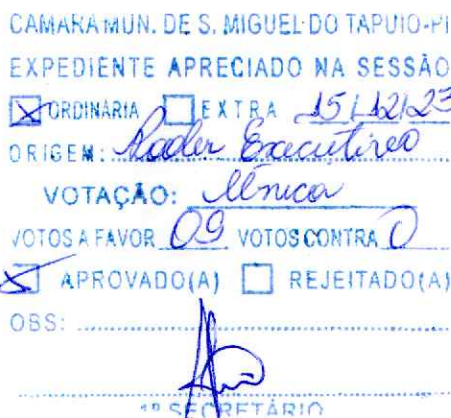 CAMARA MUN. DE S. MIGUEL DO TAPUIO-PI
EXPEDIENTE APRECIADO NA SESSÃO
ORDINÁRIA EXTRA 15/12/23
ORIGEM: Poder Executivo
VOTAÇÃO: Única
VOTOS A FAVOR 09 VOTOS CONTRA 0
APROVADO(A) REJEITADO(A)
OBS:
1º SECRETÁRIO